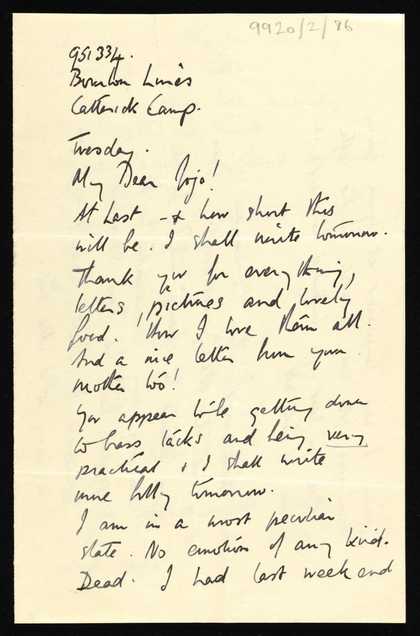 9920/2/86
951334.
Bourlon Lines
Catterick Camp.
Tuesday.
My Dear Jojo!
At Last - & how short this
will be. I shall write tomorrow.
Thank you for everything,
letters, pictures and lovely
food. How I love them all.
And a nice letter from your
mother too!
You appear to be getting down
to brass tacks and being very
practical & I shall write
more fully tomorrow.
I am in a most peculiar
state. No emotion of any kind.
Dead. I had last week end